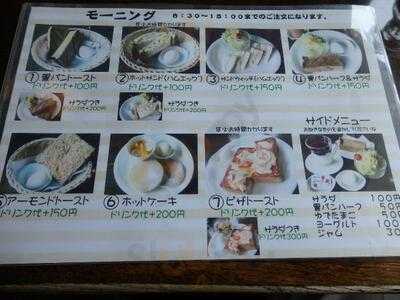 モーニング 8:30~15:00までのご注文になります。
①蜜パントースト
ドリンク代+100円
②ホットサンド(ハムエッグ)
ドリンク代+150円
③サンドウィッチ(ハムエッグ)
ドリンク代+150円
④蜜パンハーフ&サラダ
ドリンク代+150円
サラダつき
ドリンク代+200円
サラダつき
ドリンク代+200円
少々お時間かかります
サイドメニュー
⑤アーモンドトースト
ドリンク代+150円
⑥ホットケーキ
ドリンク代+200円
⑦ピザトースト
ドリンク代+200円
サラダつき
ドリンク代300円
サラダ 100円
蜜パンハーフ 50円
ゆでたまご 50円
ヨーグルト 100円
ジャム 30